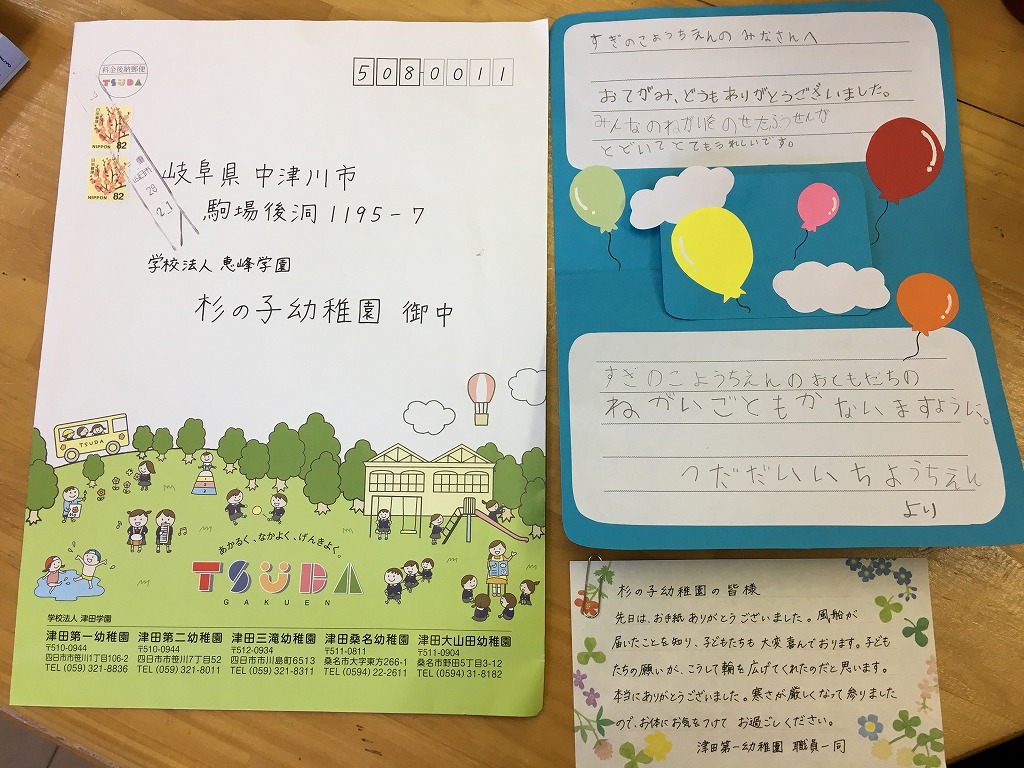 料金後納郵便
TSUDA
508-0011
日本郵便
NIPPON 82
日本郵便
NIPPON 82
岐阜県中津川市
駒場後洞1195-7
学校法人 恵峰学園
杉の子幼稚園 御中
TSUDA
あかるく、なかよく、げんきよく。
TSUDA
GAKUEN
学校法人 津田学園
津田第一幼稚園
〒510-0944
四日市市笹川1丁目106-2
TEL (059) 321-8836
津田第二幼稚園
〒510-0944
四日市市笹川7丁目52
TEL (059) 321-8011
津田三滝幼稚園
〒512-0934
四日市市川島町6513
TEL (059) 321-8311
津田桑名幼稚園
〒511-0811
桑名市大字東方266-1
TEL (0594) 22-2611
津田大山田幼稚園
〒511-0904
桑名市野田5丁目3-12
TEL (0594) 31-8182
すぎのこようちえんの みなさんへ
おてがみ、どうもありがとうございました。
みんなのねがいをのせたふうせんが
とどいてとてもうれしいです。
すぎのこようちえんのおともだちの
ねがいごともかないますように。
つだだいいちようちえん
より
杉の子幼稚園の皆様
先日は、お手紙ありがとうございました。風船が
届いたことを知り、子どもたちも大変喜んでおります。子ども
たちの願いが、こうして輪を広げてくれたのだと思います。
本当にありがとうございました。寒さが厳しくなって参りました
ので、お体にお気をつけて お過ごしください。
津田第一幼稚園 職員一同